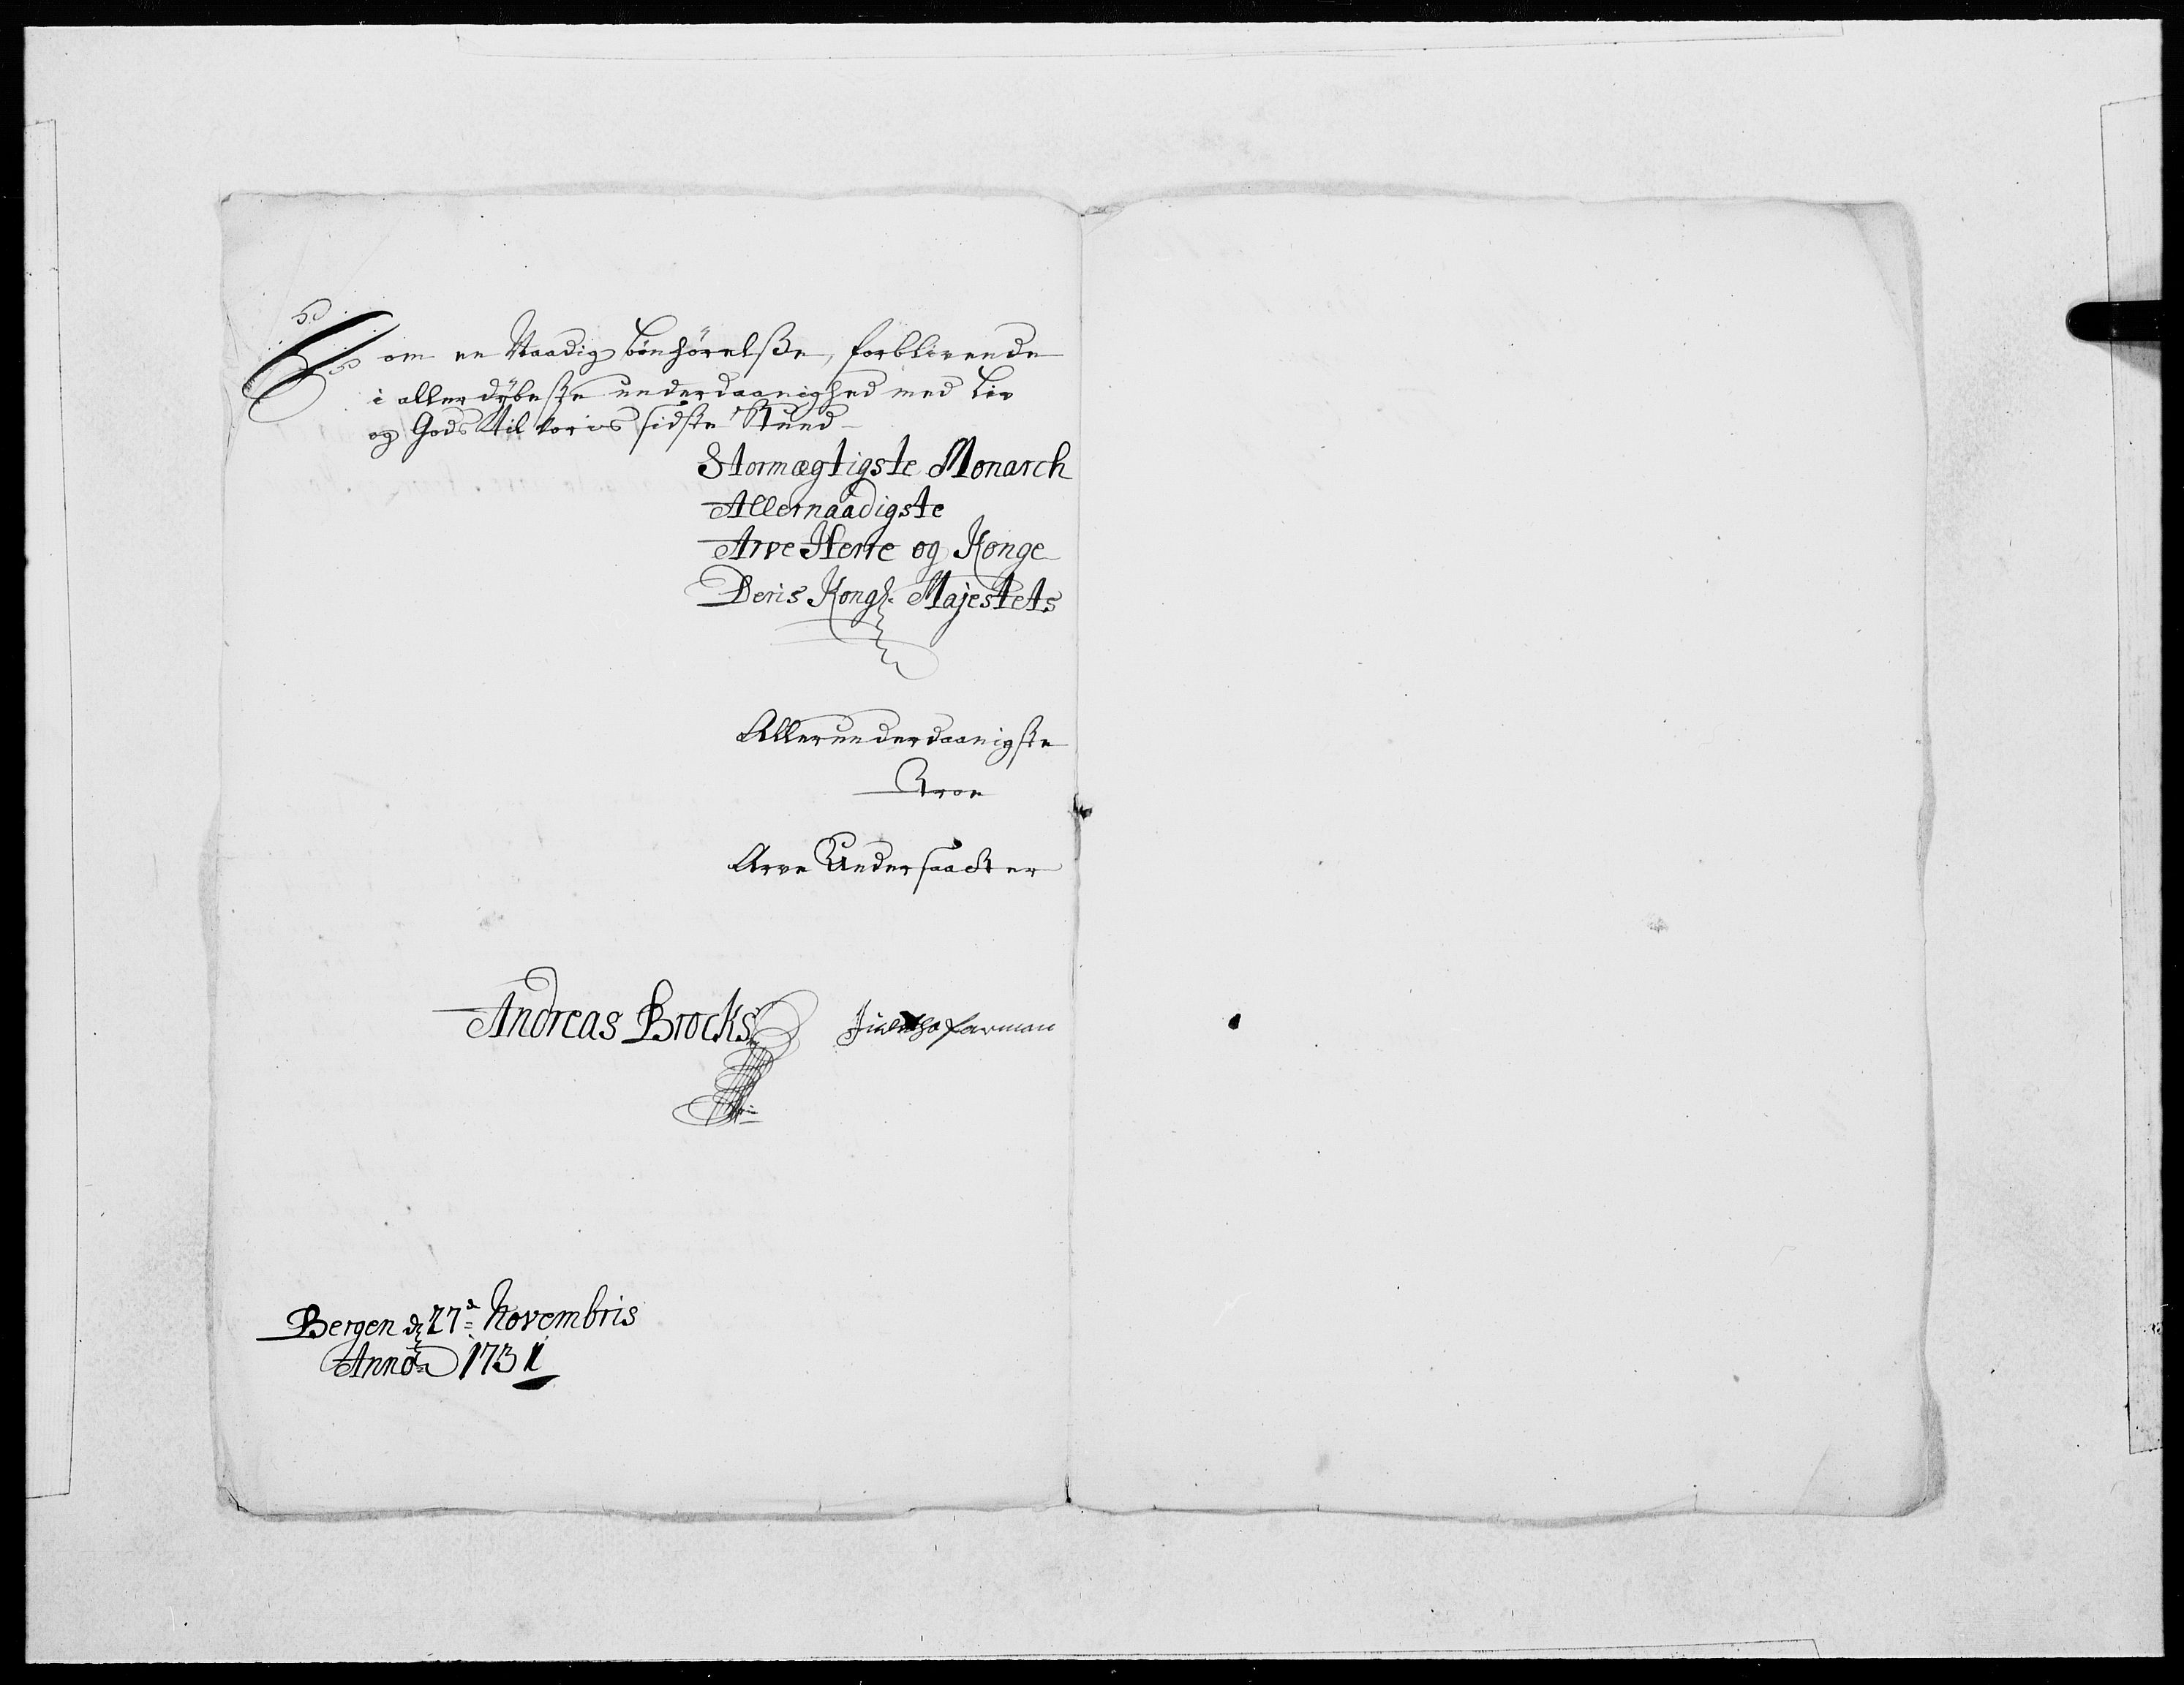 om en Naadig bönhörelsße, forblivende
i allerdÿbeste underdaanighed med Liv
og Gods til voris sidste Stund
Stormægtigste Monarch
Allernaadigste
Arve Herre og Konge
Deris Kongl: Majestets
Allerunderdaanigste
Troe
Arve Undersaatter
Andreas Brocks
Bergen d 27d Novembris
Anno 1731